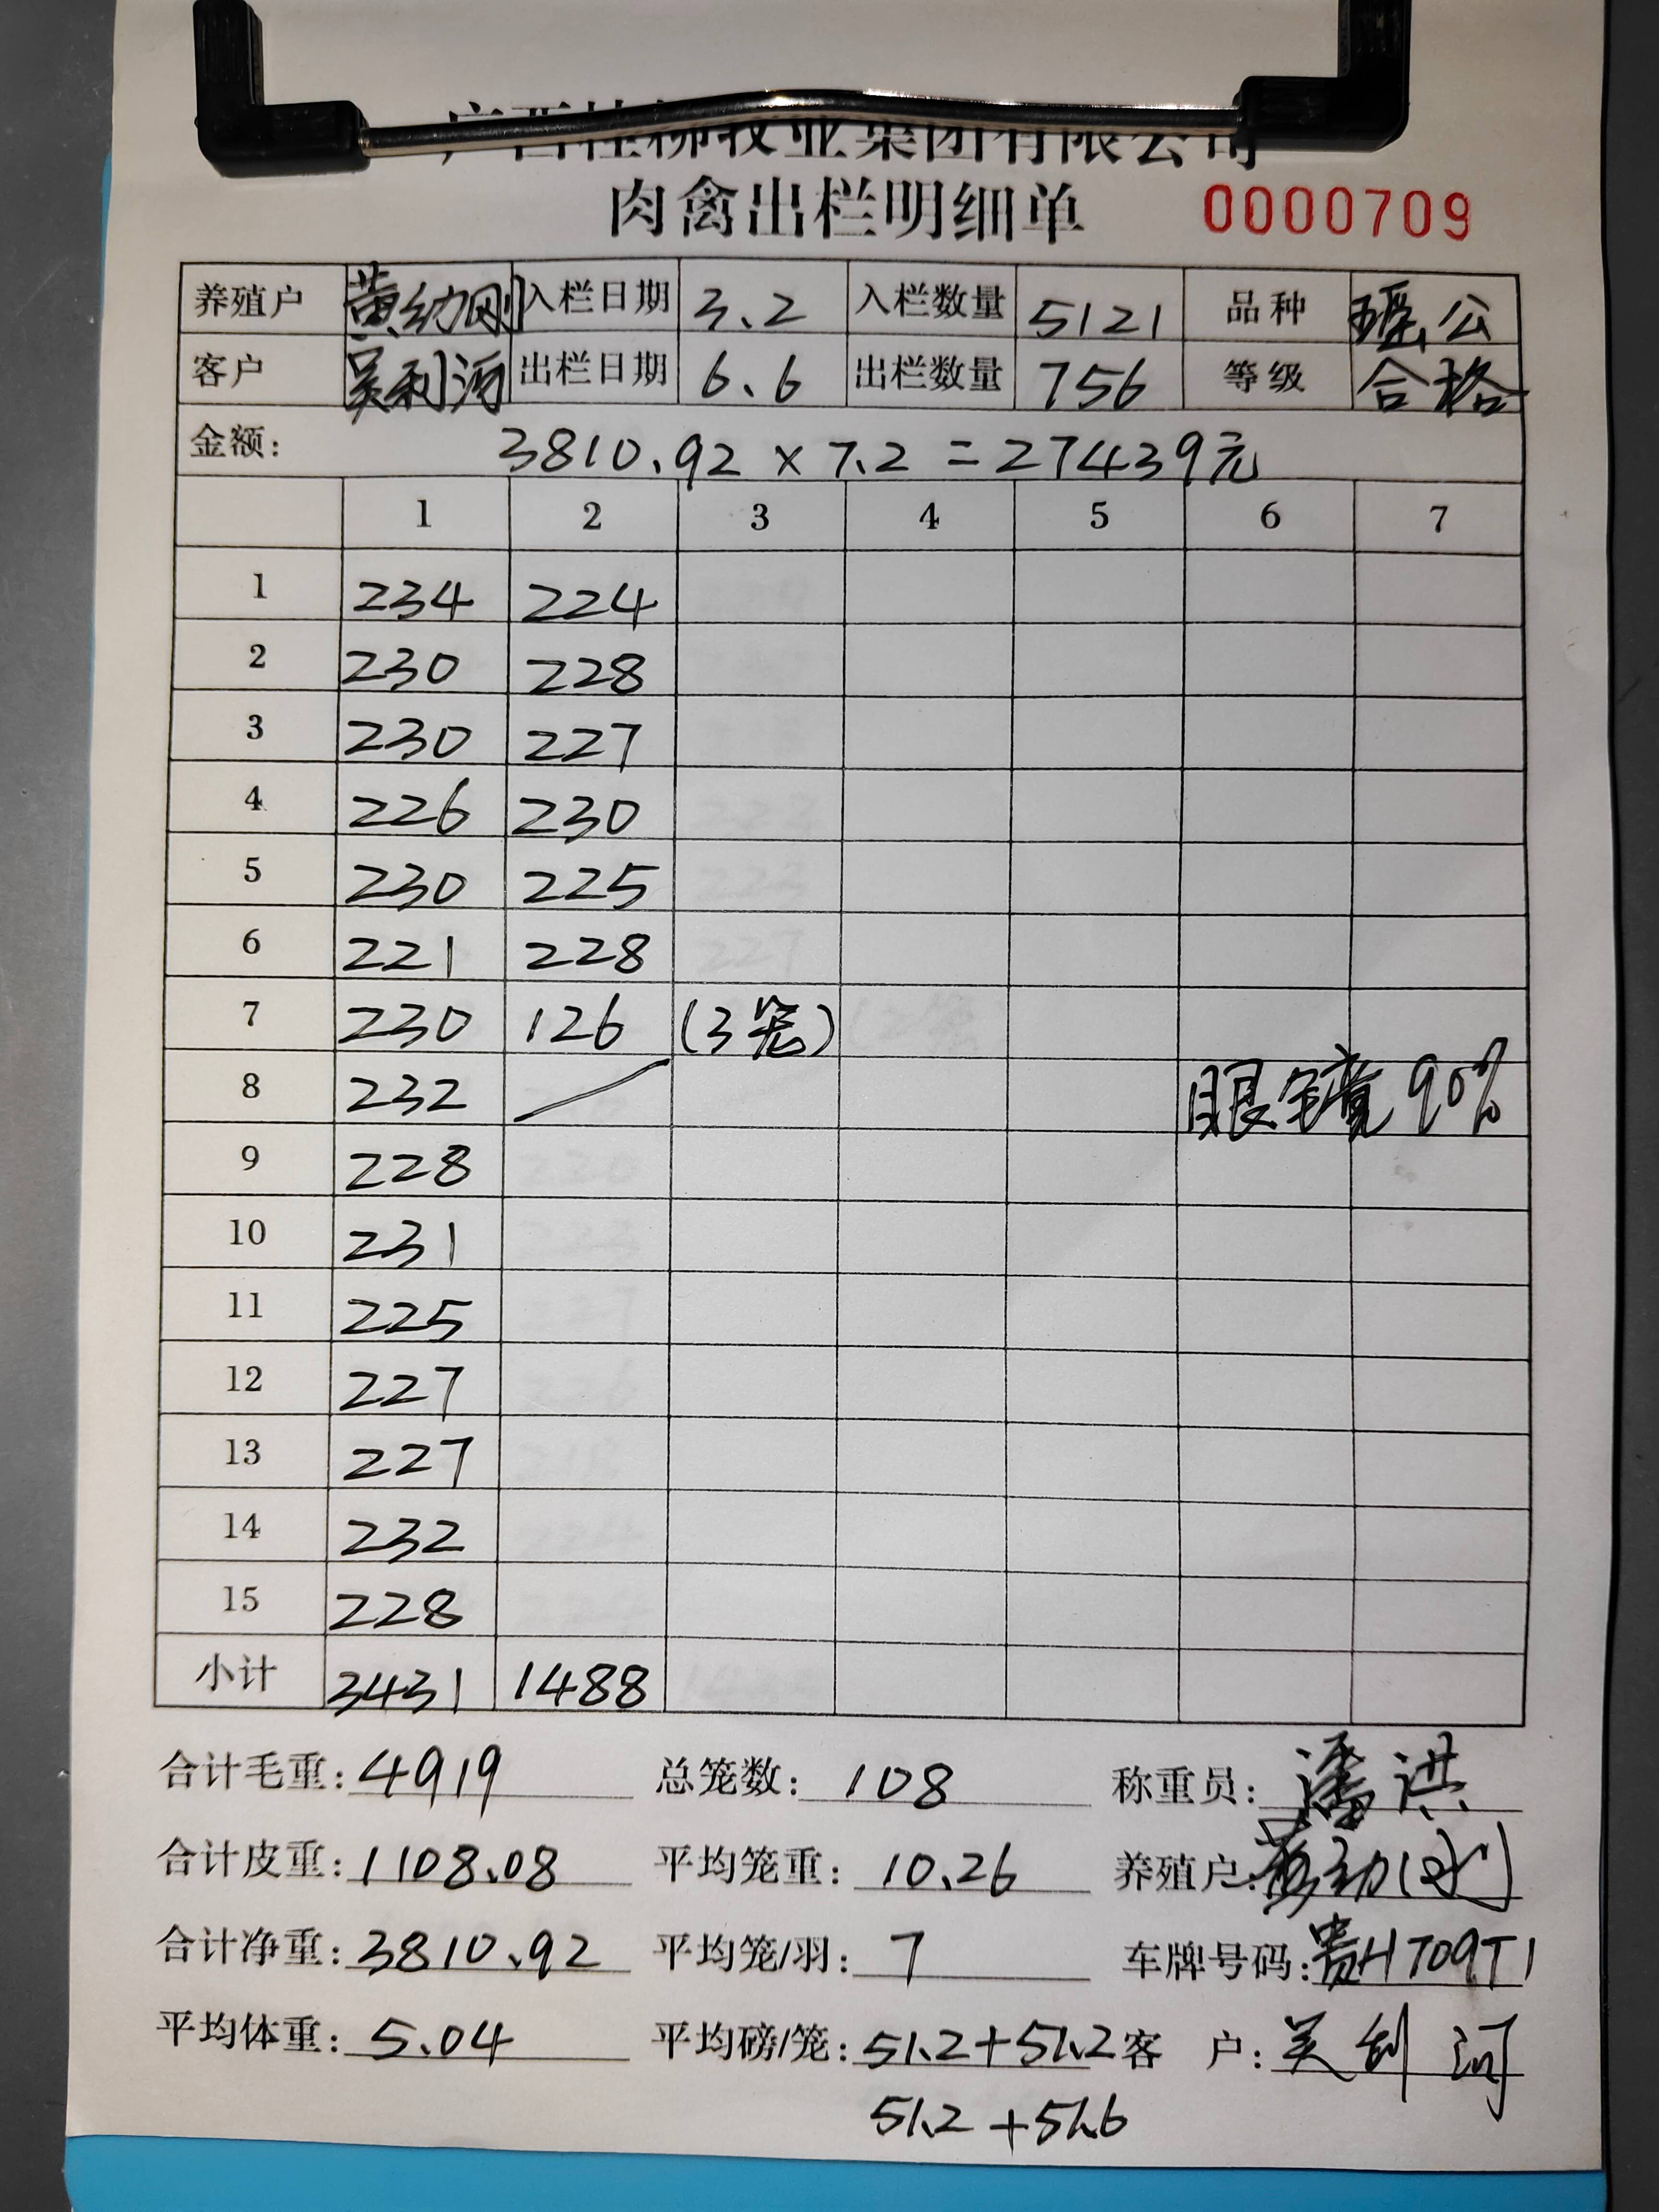 广西桂柳牧业集团有限公司
肉禽出栏明细单 0000709
养殖户 黄幼刚 入栏日期 3.2 入栏数量 5121 品种 瑶公
客户 吴利河 出栏日期 6.6 出栏数量 756 等级 合格
金额: 3810.92 × 7.2 = 27439元
1 2 3 4 5 6 7
1 234 224
2 230 228
3 230 227
4 226 230
5 230 225
6 221 228
7 230 126 (3笼)
8 232 眼镜90%
9 228
10 231
11 225
12 227
13 227
14 232
15 228
小计 3431 1488
合计毛重: 4919 总笼数: 108 称重员: 潘洪
合计皮重: 1108.08 平均笼重: 10.26 养殖户:
合计净重: 3810.92 平均笼/羽: 7 车牌号码: 贵HT09T1
平均体重: 5.04 平均磅/笼: 51.2+51.2 客 户: 吴利河
51.2+51.6